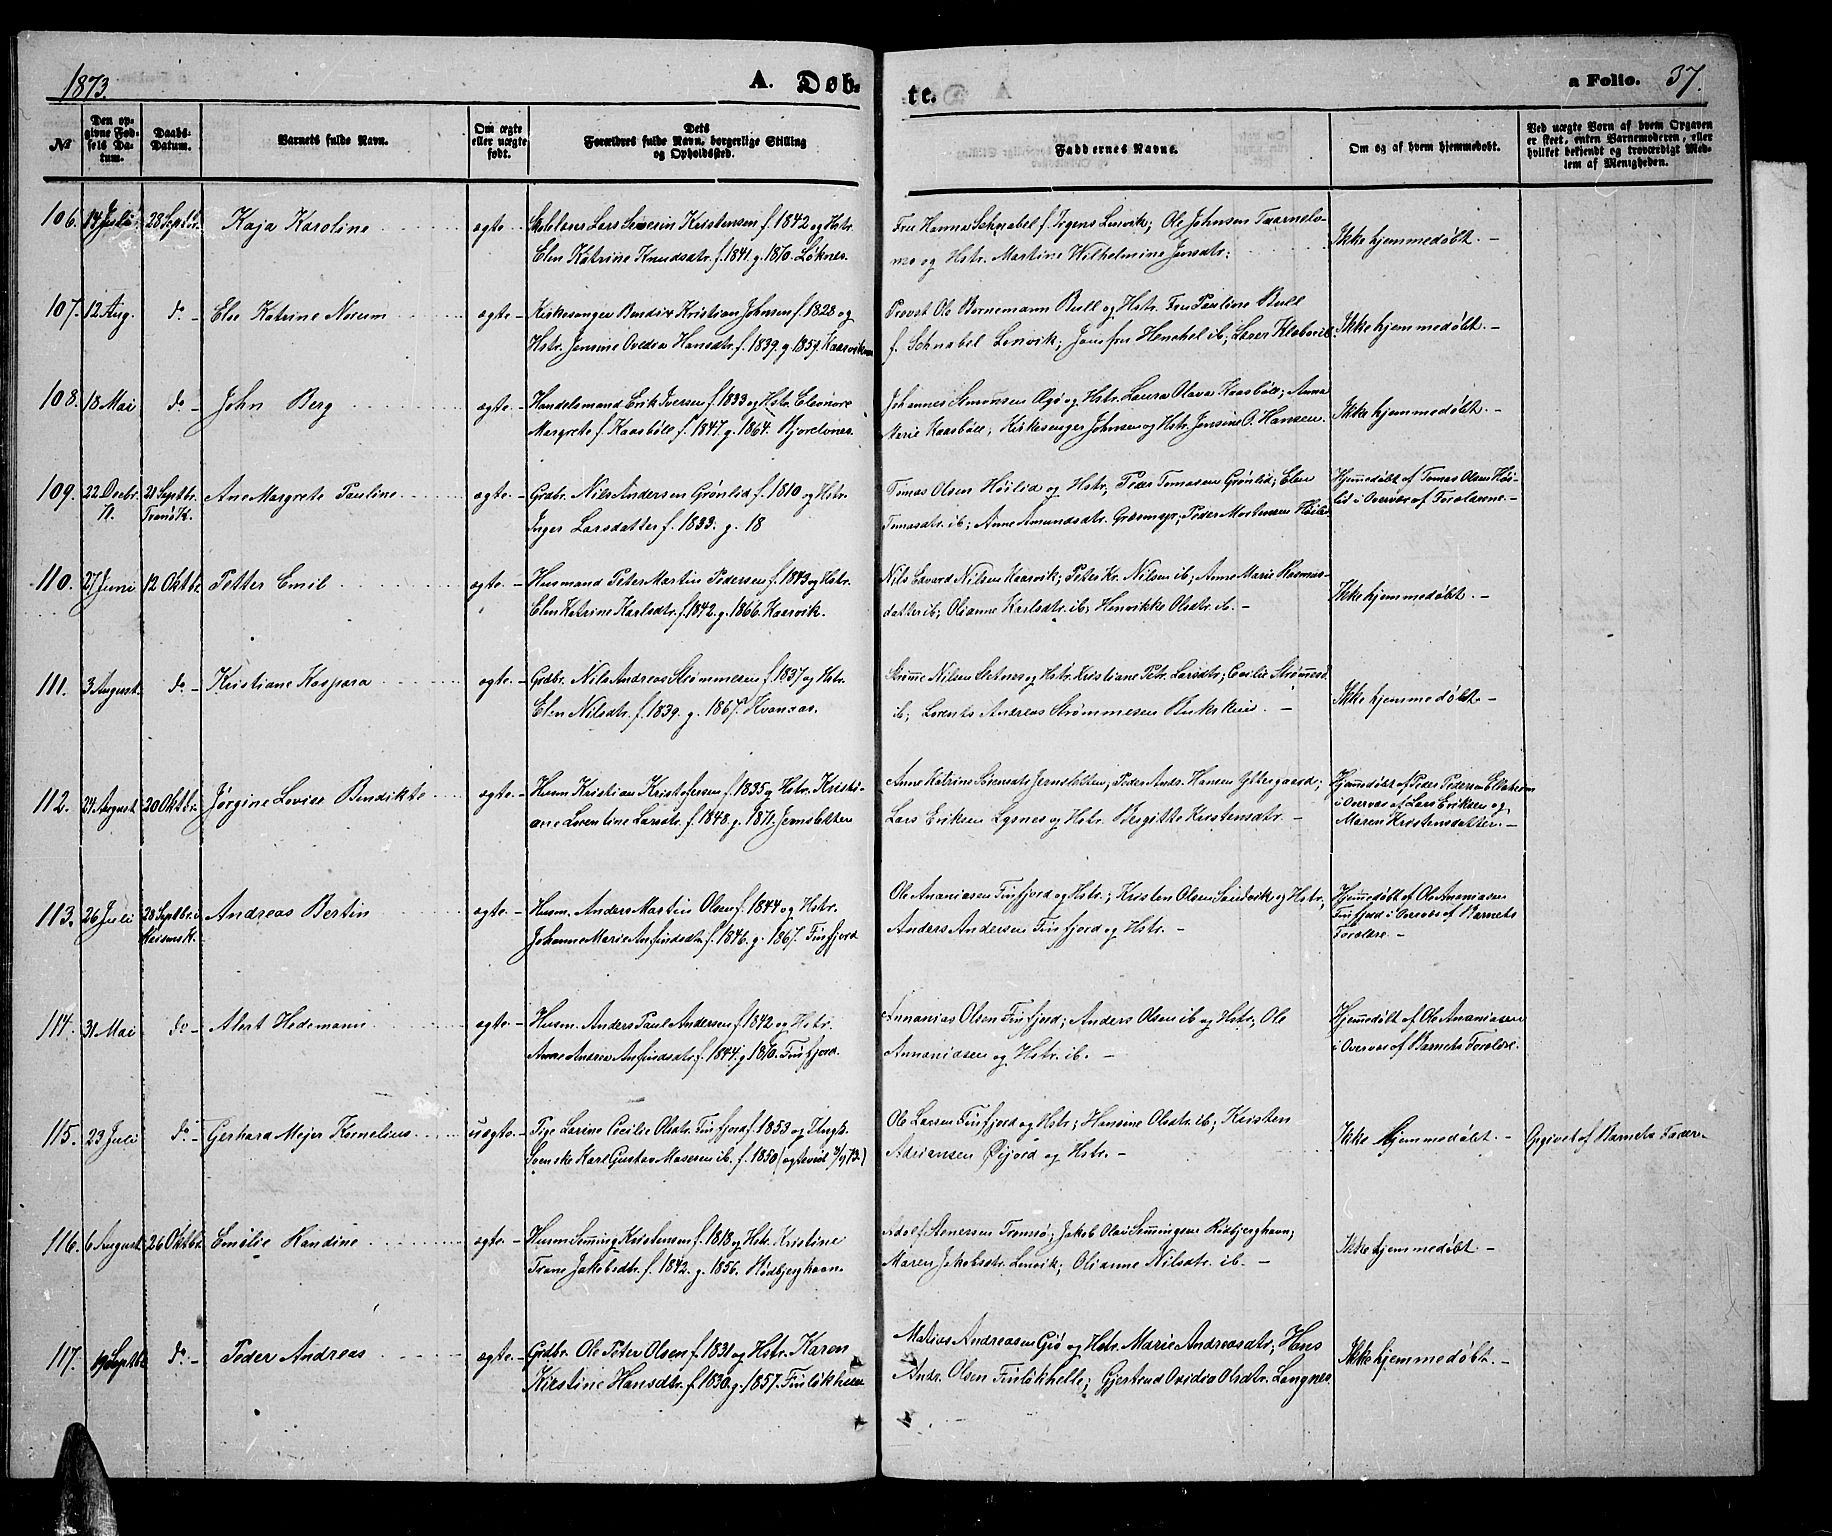 1873.
A. Døb-
te.
a Folio. 37.
№
Den op-
givne Fød-
sels Da-
tum.
Daabs-
Datum.
Barnets fulde Navn.
Om ægte
eller uægte
født.
Dets
Forældres fulde Navn, borgerlige Stilling
og Opholdssted.
Faddernes Navne.
Om og af hvem hjemmedøbt.
Ved uægte Børn af hvem Opgaven
er skeet, enten Barnemoderen, eller
hvilket bekjendt og troværdigt Med-
lem af Menigheden.
106. 14 Juli 28 Septbr. Kaja Karoline ægte. Lars Severin Kristensen f. 1842 og Hstr.
Elen Katrine Knudsdtr. f. 1841 g. 1870. Løknes.
Fru Hanna Schnabel f. Lenvik; Ole Johnsen Taarnelv-
mo og Hstr. Martine Wilhelmine Jensdtr.
Ikke hjemmedøbt. –
107. 12 Aug. do – Else Katrine Norum ægte. Kirkesanger Bendix Kristian Johnsen f. 1828 og
Hstr. Jensine Ovidea Hansdtr. f. 1839. g. 1859. Kaarvik
Provst Ole Bornemann Bull og Hstr. Fru Pauline Bull
f. Schnabel Lenvik; Jomfru Henchel ib; Lærer Kløbvik
Ikke hjemmedøbt. –
108. 18 Mai do – John Berg ægte. – Handelsmand Erik Iversen f. 1833 og Hstr. Eleonore
Margrete f. Kaasbøll f. 1847. g. 1864. Bjorelvnes.
Johannes Simonsen og Hstr. Laura Olava Kaasbøll; Anna
Marie Kaasbøll; Kirkesanger Johnsen og Hstr. Jensine O. Hansen.
Ikke hjemmedøbt. –
109. 22 Decbr. 21 Septbr. Ane Margrete Pauline ægte. – Grdbr. Nils Andersen Grønlid f. 1810 og Hstr.
72. Tranø K. Inger Larsdatter f. 1833. g. 18
Tomas Olsen Høilid og Hstr; Peder Tomasen Grønlid; Elen
Tomasdtr. ib; Anne Amundsdtr. Græsmyr; Peder Mortensen Høilid
Hjemmedøbt af Tomas Olsen Høi-
lid i Overvær af Forældrene. –
110. 27 Juni 12 Oktbr. Petter Emil ægte. – Husmand Peter Martin Pedersen f. 1843 og Hstr.
Elen Katrine Karlsdtr. f. 1842. g. 1866. Kaarvik.
Nils Edvard Nilsen Kaarvik; Peter Kr. Nilsen ib; Anne Marie Rasmus-
datter ib; Olianne Karlsdtr. ib; Henrikke Olsdtr. ib. –
Ikke hjemmedøbt. –
111. 3 August. do – Kristiane Kaspara ægte. – Grdbr. Nils Andreas Strømmesen f. 1837 og Hstr.
Elen Nilsdtr. f. 1839. g. 1867. Kvannaas.
Strømme Nilsen og Hstr. Kristiane Petr. Larsdtr; Cecilie Strømmesd.
ib; Lorents Andreas Strømmesen Bukskin. –
Ikke hjemmedøbt. –
112. 24 August 20 Oktbr. Jørgine Lovise Bendikte ægte. – Husm. Kristian Kristofersen f. 1835 og Hstr. Kristi-
ane Lorentine Larsdtr. f. 1848. g. 1871. Jernsletten
Anne Katrine Sørensdtr. Jernsletten; Peder Andr. Hansen Yttergaard;
Lars Eriksen Lysnes og Hstr. Bergitte Kristensdtr. –
Hjemmedøbt af Peder Pedersen
i Overvær af Lars Eriksen og
Maren Kristensdatter. –
113. 26 Juli 28 Septbr. i Andreas Bertin ægte. – Husm. Anders Martin Olsen f. 1844 og Hstr.
K. Johanne Marie Anfindsdtr. f. 1846. g. 1867. Finfjord
Ole Ananiasen Finfjord og Hstr; Kristen Olsen Sandvik og Hstr;
Anders Andersen Finfjord og Hstr. –
Hjemmedøbt af Ole Ananiasen
Finfjord i Overvær af Barnets
Forældre. –
114. 31 Mai do – Alert Hedemann ægte. – Husm. Anders Paul Andersen f. 1842 og Hstr.
Anne Andrea Anfindsdtr. f. 1844. g. 1870. Finfjord.
Annanias Olsen Finfjord; Anders Olsen ib og Hstr; Ole
Annaniasen og Hstr. ib. –
Hjemmedøbt af Ole Ananiasen
i Overvær af Barnets Forældre.
115. 23 Juli do – Gerhard Mejer Kornelius uægte. – Pige Larine Cecilie Olsdtr. Finfjord f. 1853 og Ungk.
Svenske Karl Gustav ib. f. 1850
Ole Larsen Finfjord og Hstr; Hansine Olsdtr. ib; Kristen
Adriansen Øijord og Hstr. –
Ikke hjemmedøbt. –
Opgivet af Barnets Fader. –
116. 6 August. 26 Oktbr. Emilie Randine ægte. – Husm. Kristensen f. 1818 og Hstr. Kristine
Trane Jakobsdtr. f. 1842. g. 1856. Rødbjerghavn.
Adolf Stenersen Tromsø; Jakob Olai Rødbjerghavn;
Maren Jakobsdtr. Lenvik; Olianne Nilsdtr. ib. –
Ikke hjemmedøbt –
117. 19 Septbr. do – Peder Andreas ægte. – Grdbr. Ole Peter Olsen f. 1831 og Hstr. Karen
Kirstine Hansdtr. f. 1830. g. 1857. Finlikhelle
Matias Andreasen Gjø og Hstr. Marie Andreasdtr; Hans
Andr. Olsen Finlikhelle; Gjertrud Ovidea Olsdtr. Langnes
Ikke hjemmedøbt. –